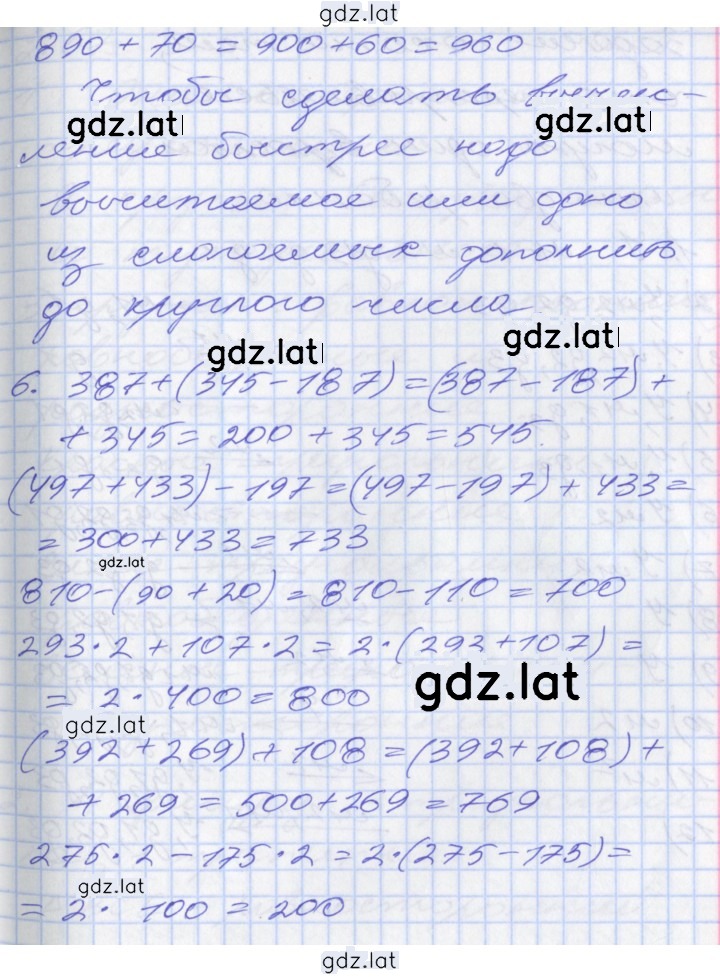 gdz.lat
890 + 70 = 900 + 60 = 960
Чтобы сделать
gdz.lat gdz.lat
ление быстрее надо
вычитаемое или одно
из слагаемых дополнить
до круглого числа
gdz.lat gdz.lat
6. 387 + (345 - 187) = (387 - 187) +
+ 345 = 200 + 345 = 545.
(497 + 433) - 197 = (497 - 197) + 433 =
= 300 + 433 = 733
gdz.lat
810 - (90 + 20) = 810 - 110 = 700
293 · 2 + 107 · 2 = 2 · (292 + 107) =
= 2 · 400 = 800
gdz.lat
gdz.lat
(392 + 269) + 108 = (392 + 108) +
+ 269 = 500 + 269 = 769
275 · 2 - 175 · 2 = 2 · (275 - 175) =
gdz.lat
= 2 · 100 = 200
gdz.lat